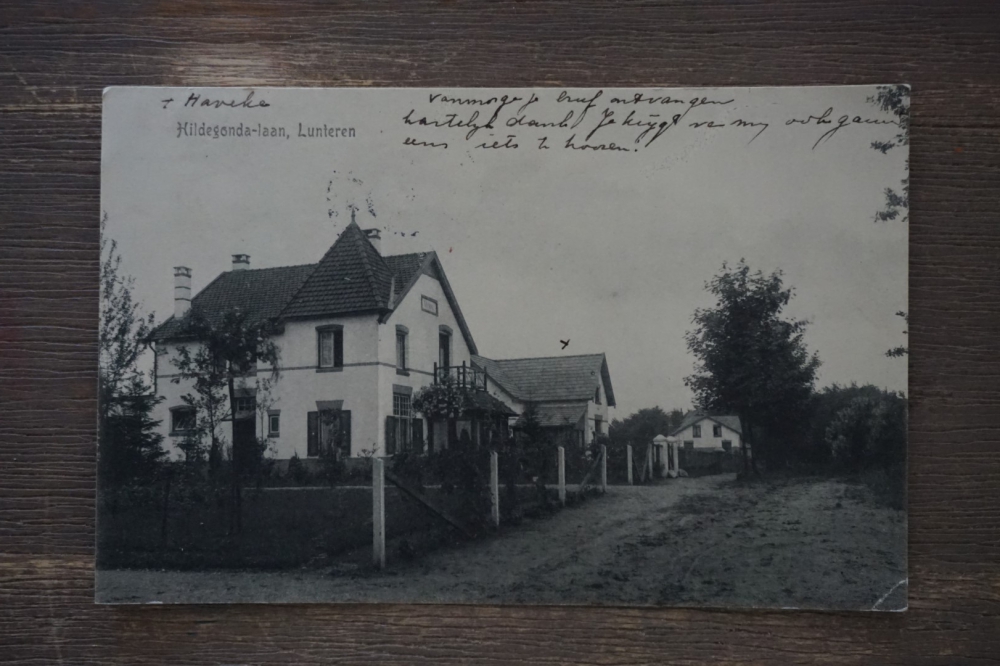 + Haveke
Hildegonda-laan, Lunteren
vanmorge je brief ontvangen
hartelijk dank, Je krijgt van mij ook gauw
eens iets te hooren.